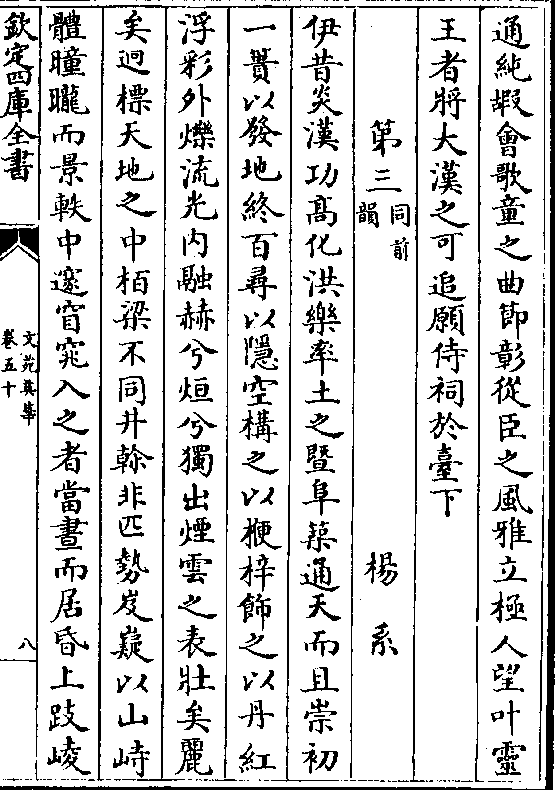 通純嘏會歌童之曲節彰從臣之風雅立極人望叶靈
王者將大漢之可追願侍祠於臺下
第三同前韻　楊系
伊昔炎漢功髙化洪樂率土之暨阜築通天而且崇初
一蕢以發地終百尋以隱空構之以楩梓飾之以丹紅
浮彩外爍流光内融赫兮烜兮獨出煙雲之表壯矣麗
矣迥標天地之中栢梁不同井榦非匹勢岌嶷以山峙
體曈曨而景軼中邃窅窕入之者當晝而居昏上跂崚
欽定四庫全書
文苑英華
卷五十
八